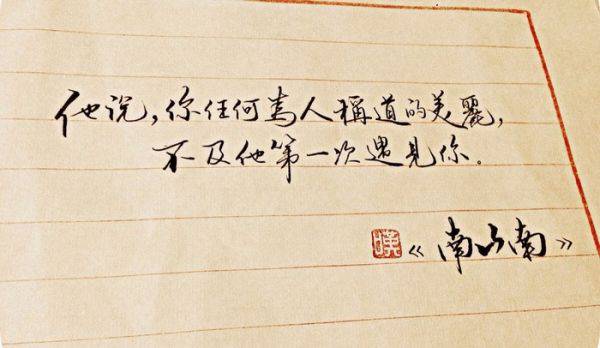 他说，你任何為人稱道的美麗，
不及他第一次遇見你。
《南山南》